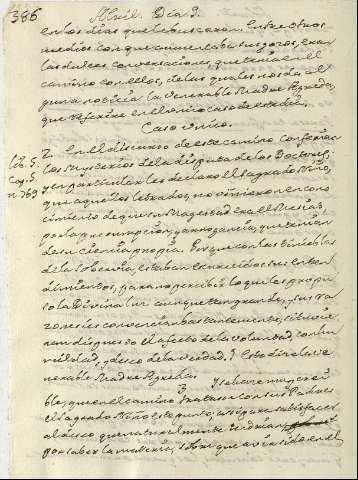 386
Abril. Dia 9.
en los dias que le buscaron. Entre otros
medios con que aumentaba sus gozos, eran
las dulces conversaciones, que tenia en el
camino con ellos, de las quales nos da al-
guna noticia la Venerable Madre Agreda,
que referire en el unico caso de este dia.
Caso Unico.
lib. 5.
Cap. 5.
n. 769
2 En el discurso de este camino conferian
los Mysterios de la disputa de los Doctores;
y en particular les declaró el Sagrado Niño,
que aquellos letrados, no vinieron en cono
cimiento de que su Magestad era el Mesias,
por la presumpcion, y arrogancia, que tenian
de su ciencia propia. Porque con las tinieblas
de la soberbia, estaban obscurecidos sus enten
dimientos, para no percibir lo que les propu
so la Divina luz aunque tan grande, y sus ra
zones los convencian bastantemente, si tuvie
ran dispuesto el afecto de la voluntad, con hu
mildad, y deseo de la verdad. Esto dice la Ve
nerable Madre Agreda.
3 Y se hace muy crei
ble, que en el camino tratara con sus Padres
el Sagrado Niño este punto, asi para satisfacer
al deseo que naturalmente tendrian
por saber la materia, sobre que avia sido en el